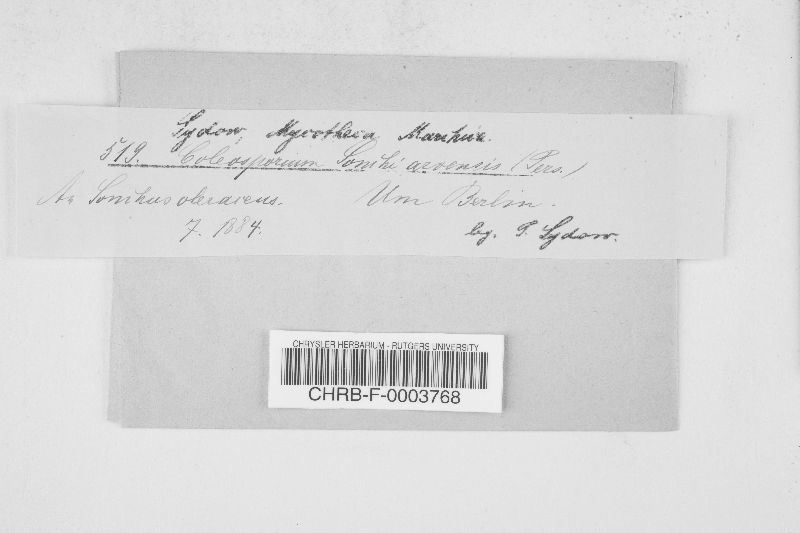 Sydow, Mycotheca Marchica.
519. Coleosporium Sonchi arvensis (Pers.)
An Sonchus oleraceus. Um Berlin.
7. 1884. leg. P. Sydow.
CHRYSLER HERBARIUM - RUTGERS UNIVERSITY
CHRB-F-0003768